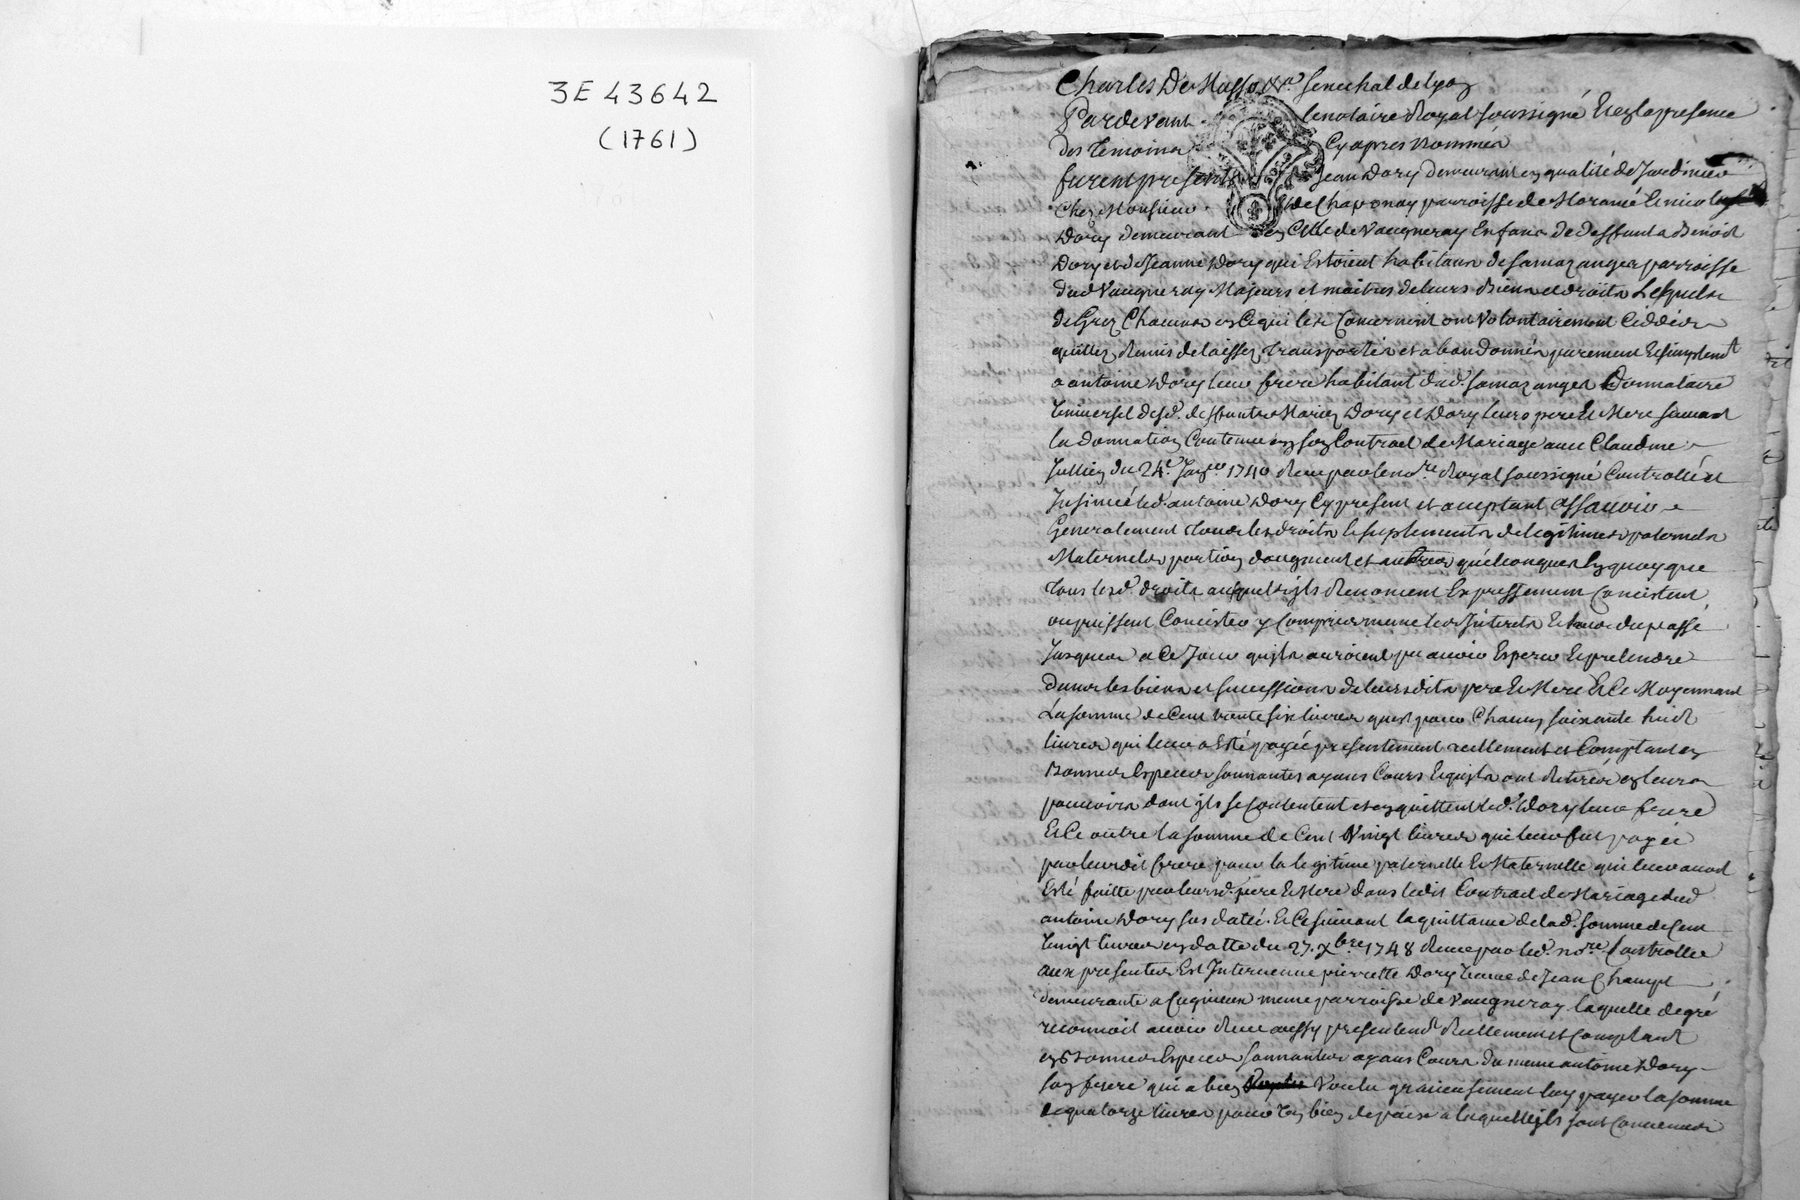 3E 43642
(1761)
Charles De Masso &c.ª Senechal de Lyon
Pardevant le notaire Royal soussigné Et en la presence
des temoins Cy apres Nommés
furent presents Jean Dory demeurant en qualité de Jardinier
Chez Monsieur De Chaponay parroisse de Morancé Et
Dory demeurant en Celle de Vaugneray Enfans de deffunts Benoit
Dory et de Jeanne Dory qui Estoient habitans de Samazanges parroisse
dud Vaugneray Majeurs et maitres de leurs Biens et droits Lesquels
de Grez Chacuns en Ce qui les Concernent ont Volontairement Ceddés
quittez Remis delaissez transportés et abandonnés purement Et simplemt
a antoine Dory leur frere habitant dud. Samazanges Donnataire
Universel desd. deffunts Mariez Dory et Dory leurs pere Et Mere suivant
la donnation Contenue en son Contract de Mariage avec Claudine
Jullien du 24e. 1740 Receu par le nore Royal soussigné Controllé et
Insinué led. antoine Dory Cy present et acceptant assavoir
Generalement tous les droits le suplements de legitimes paternels
Maternels portion daugment et autres quelconques En quoy que
tous lesd. droits auxquels ils Renoncent Expressement Concistent
ou puissent Concister y Compris meme les Interets Echus du passé
Jusques a Ce Jour quils auroient pu avoir Esperer Et pretendre
dans les biens et successions de leursdits pere Et Mere Et Ce Moyennant
La somme de Cent trente six livres quest pour Chacun soixante huit
livres qui leur a Eté payée presentement reellement et Comptant en
Bonnes Especes sonnantes ayans Cours Et quils ont Retirés en leurs
pouvoirs dont ils se Contentent et en quittent led. Dory leur frere
Et Ce outre la somme de Cent Vingt livres qui leur fut payée
par leurdit frere pour la legitime paternelle Et Maternelle qui leur avoit
Eté faitte par leursd. pere Et Mere dans ledit Contract de Mariage dud
antoine Dory sus datté. Et Ce suivant la quittance de lad. somme de Cent
Vingt livres en datte du 27. Xbre 1748 Receue par led. nore Controllée
aux presentes Est Intervenue pierrette Dory Veuve de Jean
demeurante a meme parroisse de Vaugneray laquelle de gré
reconnoit avoir Receu aussy presentemt Reellement et Comptant
en Bonnes Especes sonnantes ayans Cours. du meme antoine Dory
son frere qui a bien Voulu gracieusement luy payer la somme
de quatorze livres pour bien de paix a laquelle ils sont Convenus